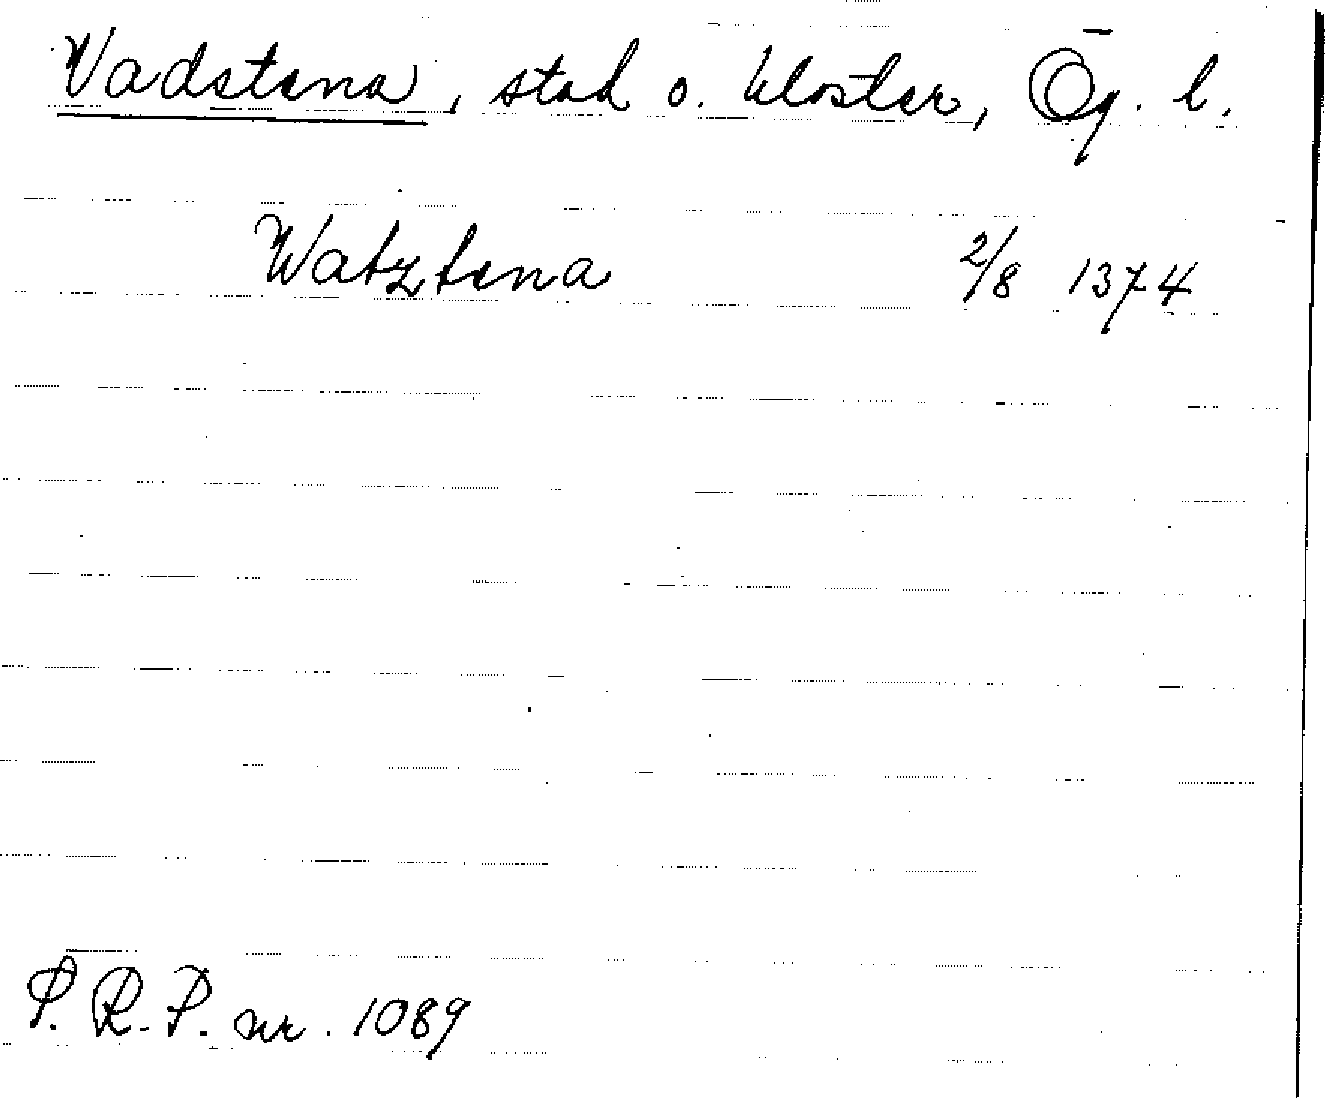 Vadstena, stad o. kloster, Ög. l.
Watztena 2/8 1374
P. R. P. nr. 1089